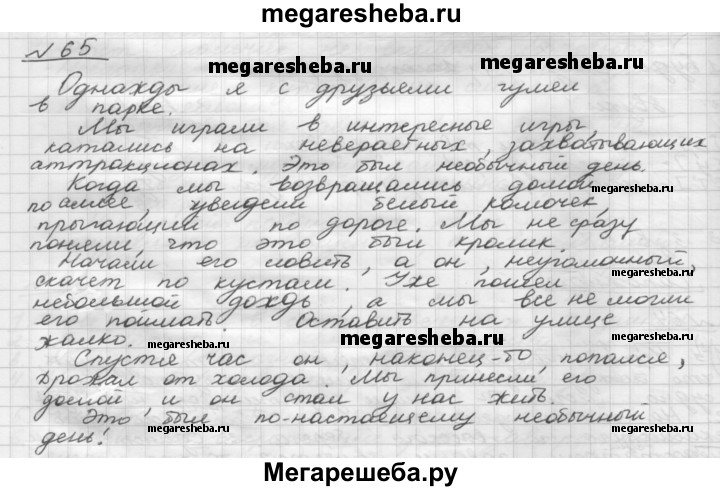 megaresheba.ru
№ 65
megaresheba.ru
megaresheba.ru
Однажды я с друзьями гулял
в парке.
Мы играли в интересные игры,
катались на невероятных, захватывающих
аттракционах. Это был необычный день.
Когда мы возвращались домой
megaresheba.ru
по аллее, увидели белый комочек,
прыгающий по дороге. Мы не сразу
поняли, что это был кролик.
Начали его ловить, а он, неугомонный,
megaresheba.ru
скачет по кустам. Уже пошёл
небольшой дождь, а мы все не могли
его поймать. Оставить на улице
жалко.
Спустя час он, наконец-то, попался,
megaresheba.ru
дрожал от холода. Мы принесли его
домой и он стал у нас жить.
Это был по-настоящему необычный
день!
megaresheba.ru
megaresheba.ru
Мегарешеба.ру